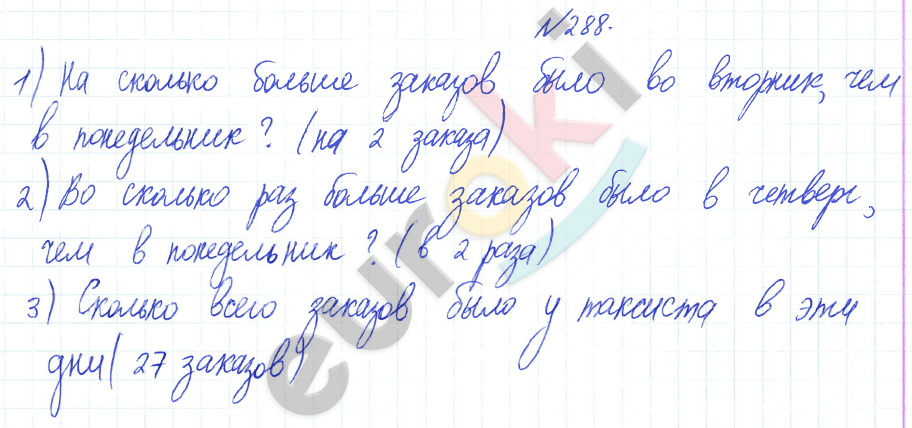 №288.
1) На сколько больше заказов было во вторник, чем
в понедельник? (на 2 заказа)
2) Во сколько раз больше заказов было в четверг,
чем в понедельник? (в 2 раза)
3) Сколько всего заказов было у таксиста в эти
дни (27 заказов)
euroki